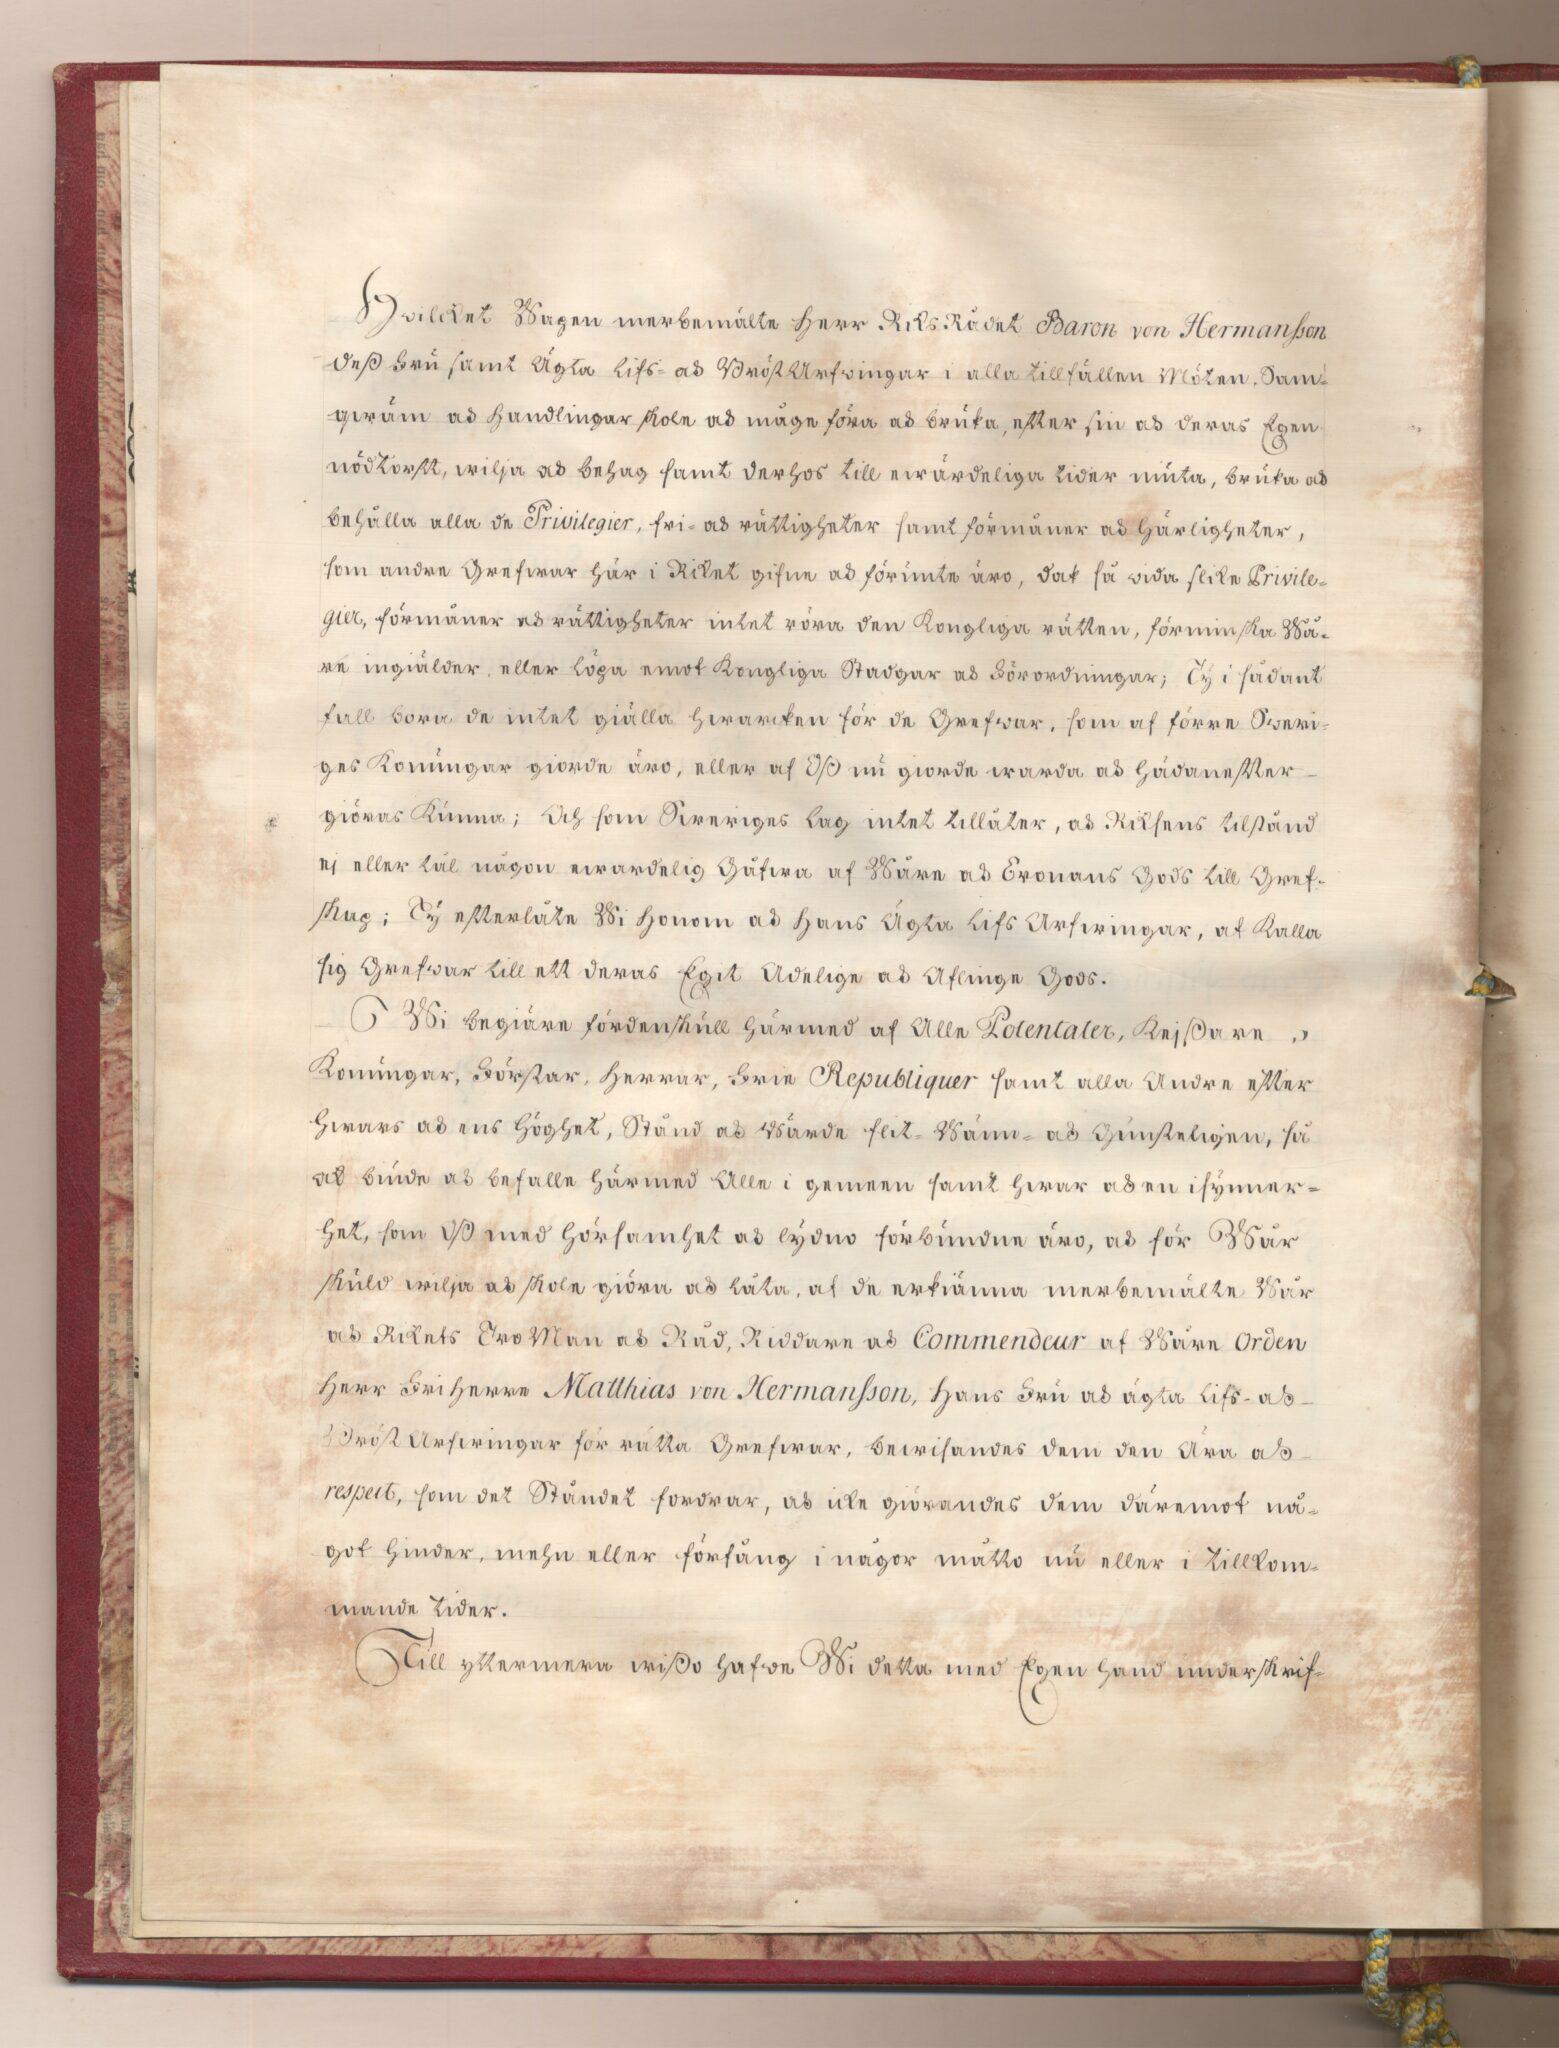 Hvilcket Wapen merbemälte Herr RiksRådet Baron von Hermansson
deß Fru samt Ägta Lifs- och BröstArfwingar i alla tillfällen Möten, Sam-
qwäm och Handlingar skole och måge föra och bruka, efter sin och deras Egen
nödtorft, wilja och behag samt derhos till ewärdeliga tider niuta, bruka och
behålla alla de Privilegier, fri- och rättigheter samt förmåner och Härligheter,
som andre Grefwar här i Riket gifne och förunte äro, dock så vida slike Privile-
gier, förmåner och rättigheter intet röra den Kongliga rätten, förminska Wå-
re ingiälder, eller löpa emot Kongliga Stadgar och Förordningar; Ty i sådant
fall böra de intet giälla hwarcken för de Grefwar, som af förre Sweri-
ges Konungar giorde äro, eller af Oß nu giorde warda och Hädanefter
giöras kunna; Och som Sweriges Lag intet tillåter, och Riksens tilstånd
ej eller tål någon ewärdelig Gåfwa af Wåre och Cronans Gods till Gref-
skap; Ty efterlåte Wi Honom och Hans Ägta Lifs Arfwingar, at Kalla
sig Grefwar till ett deras Egit Adelige och Aflinge Gods.
Wi begiäre fördenskull Härmed af Alle Potentater, Kejßare,
Konungar, Förstar, Herrar, Frie Republiquer samt alla Andre efter
Hwars och ens Höghet, Stånd och Wärde flit- Wänn- och Gunsteligen, så
ock biude och befalle Härmed Alle i gemeen samt Hwar och en isynner-
het, som Oß med Hörsamhet och lydno förbundne äro, och för Wår
skuld wilja och skole giöra och låta, at de erkiänna merbemälte Wår
och Rikets Tro Man och Råd, Riddare och Commendeur af Wåre Orden
Herr Friherre Matthias von Hermansson, Hans Fru och ägta Lifs- och
Bröst Arfwingar för rätta Grefwar, bewisandes dem den Ära och
respect, som det Ståndet fordrar, och icke giörandes dem däremot nå-
got Hinder, mehn eller förfång i någor måtto nu eller i tillkom-
mande tider.
Till yttermera wißo hafwe Wi detta med Egen hand underskrif-